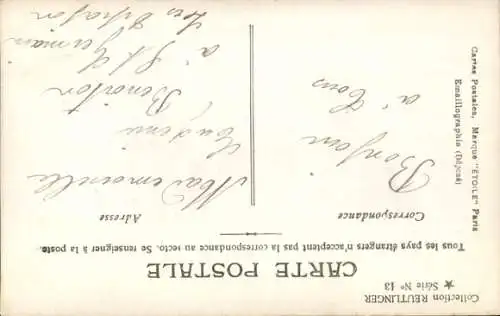 Collection REUTLINGER
★ Série Nº 13
CARTE POSTALE
Tous les pays étrangers n'acceptent pas la correspondance au recto. Se renseigner à la poste.
Correspondance
Adresse
Bonjour
à tous
Mademoiselle
Eugénie
Benoiton
à St Germain
Cartes Postales, Marque "ÉTOILE" Paris
Emaillographie (Déposé)